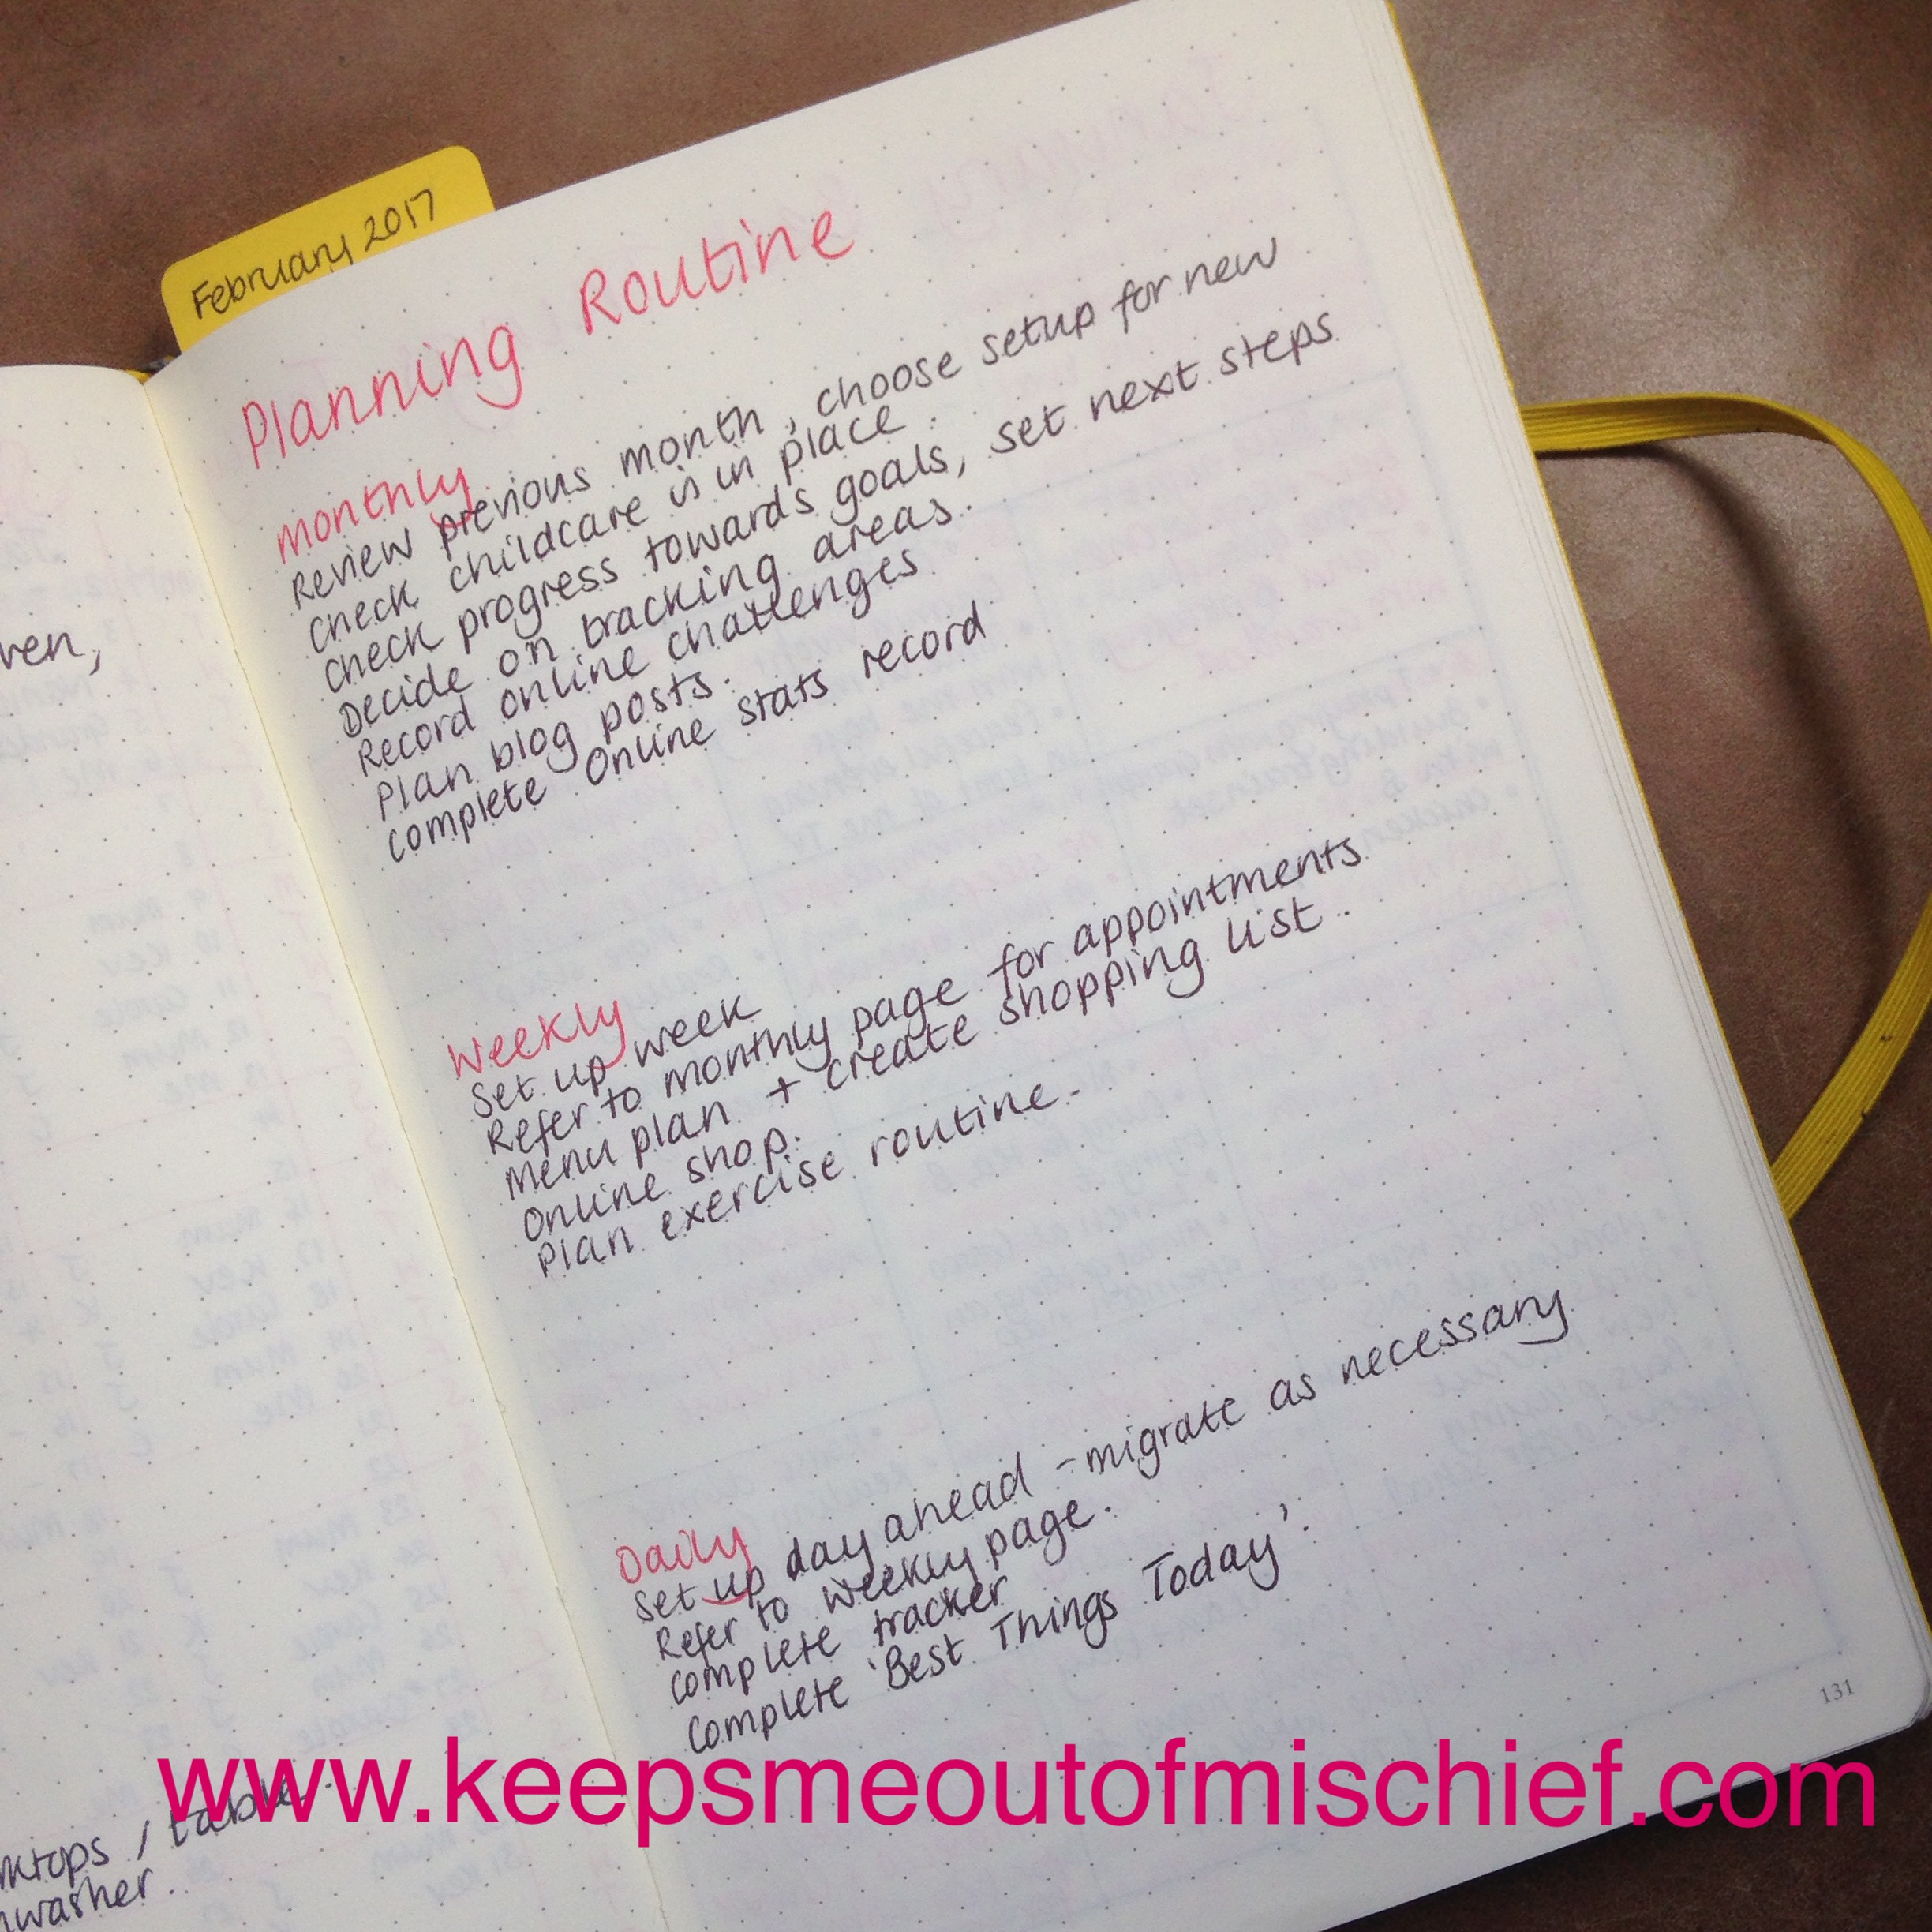 February 2017
Planning Routine
Monthly
Review previous month, choose setup for new
Check childcare is in place.
Check progress towards goals, set next steps
Decide on tracking areas.
Record online challenges
Plan blog posts.
Complete Online stats record
Weekly
Set up week
Refer to monthly page for appointments
Menu plan + create shopping list.
Online shop.
Plan exercise routine.
Daily
Set up day ahead - migrate as necessary
Refer to weekly page.
Complete tracker
Complete 'Best Things Today'.
131
www.keepsmeoutofmischief.com